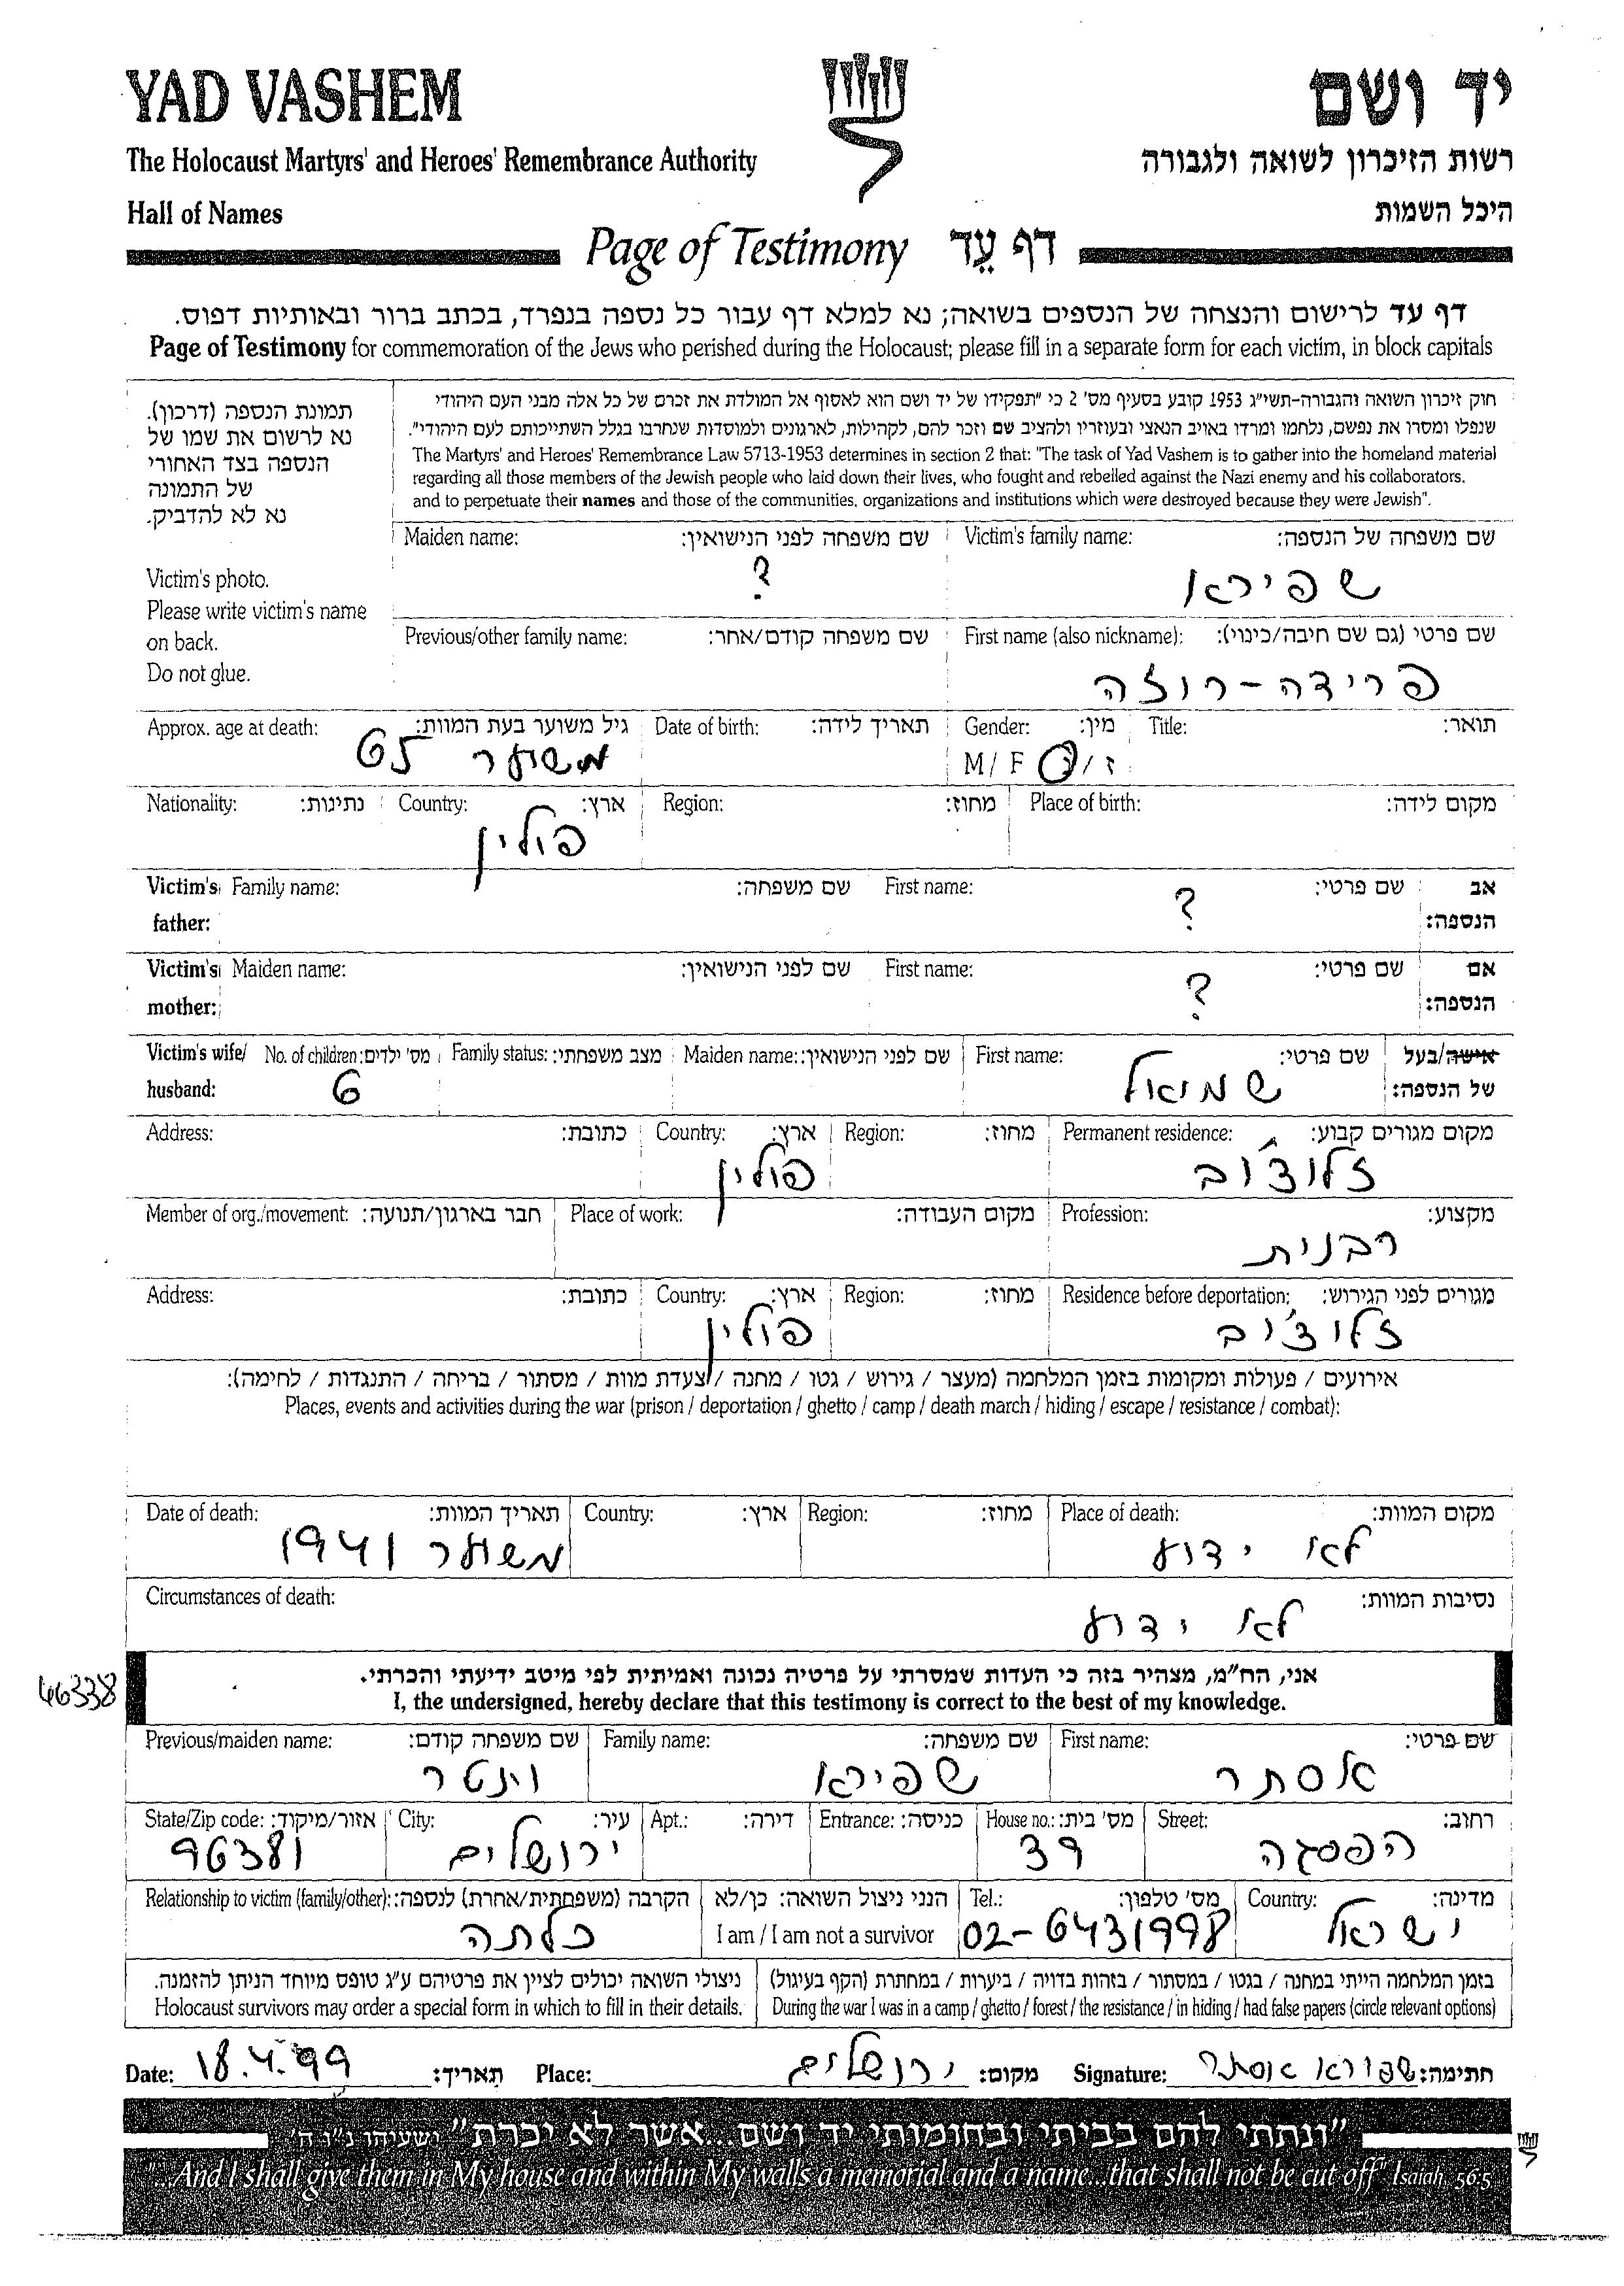 YAD VASHEM
יד ושם
The Holocaust Martyrs' and Heroes' Remembrance Authority
רשות הזיכרון לשואה ולגבורה
Hall of Names
היכל השמות
Page of Testimony דף עֵד
דף עד לרישום והנצחה של הנספים בשואה; נא למלא דף עבור כל נספה בנפרד, בכתב ברור ובאותיות דפוס.
Page of Testimony for commemoration of the Jews who perished during the Holocaust; please fill in a separate form for each victim, in block capitals
תמונת הנספה (דרכון).
נא לרשום את שמו של
הנספה בצד האחורי
של התמונה
נא לא להדביק.
Victim's photo.
Please write victim's name
on back.
Do not glue.
חוק זיכרון השואה והגבורה-תשי"ג 1953 קובע בסעיף מס' 2 כי "תפקידו של יד ושם הוא לאסוף אל המולדת את זכרם של כל אלה מבני העם היהודי
שנפלו ומסרו את נפשם, נלחמו ומרדו באויב הנאצי ובעוזריו ולהציב שם וזכר להם, לקהילות, לארגונים ולמוסדות שנחרבו בגלל השתייכותם לעם היהודי".
The Martyrs' and Heroes' Remembrance Law 5713-1953 determines in section 2 that: "The task of Yad Vashem is to gather into the homeland material
regarding all those members of the Jewish people who laid down their lives, who fought and rebelled against the Nazi enemy and his collaborators.
and to perpetuate their names and those of the communities, organizations and institutions which were destroyed because they were Jewish".
Victim's family name: שם משפחה של הנספה:
שפירא
Maiden name: שם משפחה לפני הנישואין:
?
First name (also nickname): שם פרטי (גם שם חיבה/כינוי):
פרידה-רוזה
Previous/other family name: שם משפחה קודם/אחר:
Title: תואר:
Gender: מין:
M/ F ז/נ
Date of birth: תאריך לידה:
Approx. age at death: גיל משוער בעת המוות:
משוער 65
Place of birth: מקום לידה:
Region: מחוז:
Country: ארץ:
פולין
Nationality: נתינות:
אב הנספה:
First name: שם פרטי:
?
Victim's father: Family name: שם משפחה:
אם הנספה:
First name: שם פרטי:
?
Victim's mother: Maiden name: שם לפני הנישואין:
אישה/בעל של הנספה:
First name: שם פרטי:
שמואל
Maiden name: שם לפני הנישואין:
Family status: מצב משפחתי:
No. of children: מס' ילדים:
6
Victim's wife/ husband:
Permanent residence: מקום מגורים קבוע:
זלוצ'וב
Region: מחוז:
Country: ארץ:
פולין
Address: כתובת:
Profession: מקצוע:
רבנית
Place of work: מקום העבודה:
Member of org./movement: חבר בארגון/תנועה:
Residence before deportation: מגורים לפני הגירוש:
זלוצ'וב
Region: מחוז:
Country: ארץ:
פולין
Address: כתובת:
אירועים / פעולות ומקומות בזמן המלחמה (מעצר / גירוש / גטו / מחנה / צעדת מוות / מסתור / בריחה / התנגדות / לחימה):
Places, events and activities during the war (prison / deportation / ghetto / camp / death march / hiding / escape / resistance / combat):
Place of death: מקום המוות:
לא ידוע
Region: מחוז:
Country: ארץ:
Date of death: תאריך המוות:
משוער 1941
Circumstances of death: נסיבות המוות:
לא ידוע
46338
אני, הח"מ, מצהיר בזה כי העדות שמסרתי על פרטיה נכונה ואמיתית לפי מיטב ידיעתי והכרתי.
I, the undersigned, hereby declare that this testimony is correct to the best of my knowledge.
First name: שם פרטי:
אסתר
Family name: שם משפחה:
שפירא
Previous/maiden name: שם משפחה קודם:
וינטר
Street: רחוב:
הפסגה
House no.: מס' בית:
39
Entrance: כניסה:
Apt.: דירה:
City: עיר:
ירושלים
State/Zip code: אזור/מיקוד:
96381
Country: מדינה:
ישראל
Tel.: מס' טלפון:
02-6431998
הנני ניצול השואה: כן/לא
I am / I am not a survivor
Relationship to victim (family/other): הקרבה (משפחתית/אחרת) לנספה:
כלתה
בזמן המלחמה הייתי במחנה / בגטו / במסתור / בזהות בדויה / ביערות / במחתרת (הקף בעיגול)
During the war I was in a camp / ghetto / forest / the resistance / in hiding / had false papers (circle relevant options)
ניצולי השואה יכולים לציין את פרטיהם ע"ג טופס מיוחד הניתן להזמנה.
Holocaust survivors may order a special form in which to fill in their details.
Date: 18.4.99 תאריך: Place: ירושלים מקום: Signature: שפירא אסתר חתימה:
"ונתתי להם בביתי ובחומותי יד ושם...אשר לא יכרת" ישעיהו נ"ו ה'
"...And I shall give them in My house and within My walls a memorial and a name...that shall not be cut off" Isaiah, 56:5